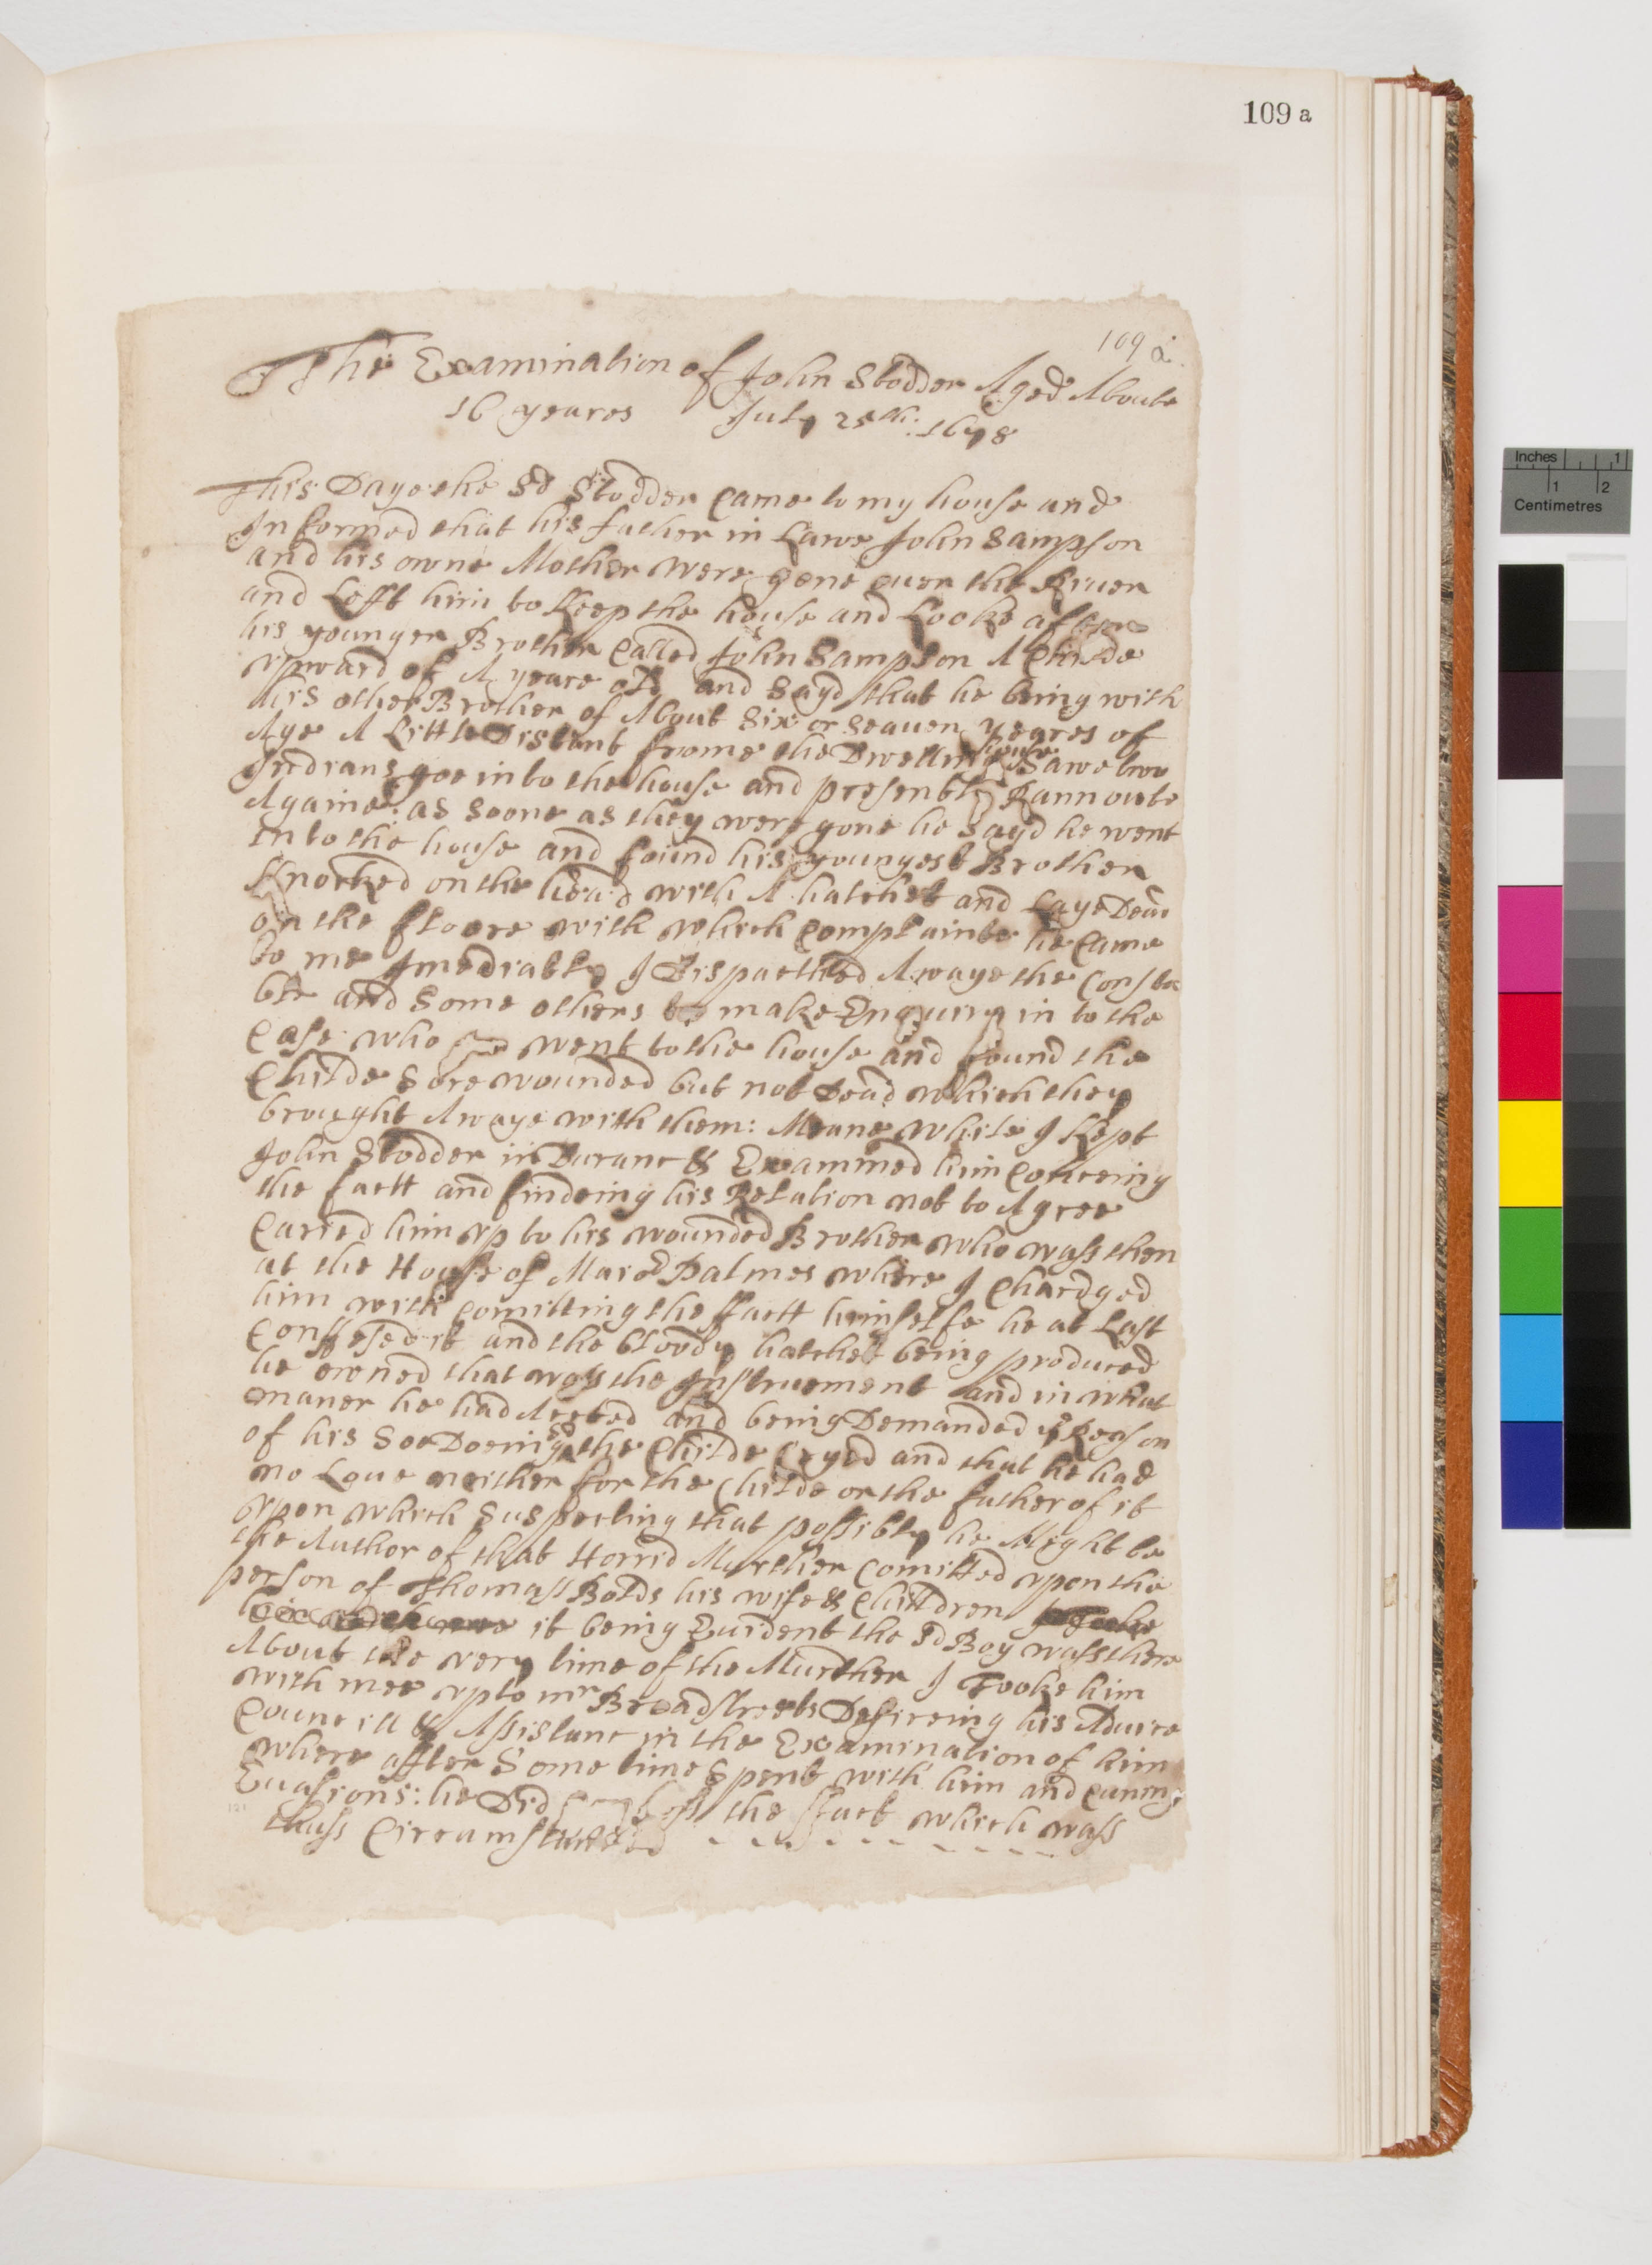 109 a
109 a
The Examination of John Stodder Aged Aboute
16 yeares July 25th: 1678
This Daye the Sd Stodder Came to my house and
Informed that his father in Lawe John Sampson
and his owne Mother were gone ouer the Riuer
and Lefft him to Keep the house and Looke after
his younger Brother Called John Sampson A Childe
vpward of A yeare old and Sayd that he being with
his other Brother of About Six or Seauen yeares of
Age A Little Distant frome the Dwelling house Sawe two
Indians goe into the house and presently Rann oute
Againe: as Soone as they were gone he Sayd he went
into the house and found his youngest Brother
Knocked on the head with A hatchet and Laye Dead
on the floore with which Complainte he Came
to me Imediatly I Dispatched Awaye the Consta
ble and Some others to make Enquiry in to the
Case who went to the house and found the
Childe Sore wounded but not Dead which they
brought Awaye with them: Meane While I Kept
John Stodder in Duranc & Examined him Concreing
the factt and findeing his Relation not to Agree
Caried him vp to his wounded Brother who wass then
at the House of Maiod Palmes where I Chardged
him with Comitting the ffactt himselfe he at Last
Confesed it and the bloody hatchet being produced
he owned that wass the Instruement and in what
maner he had Accted and being Demanded ye Reason
of his Soe Doeing Sd the Childe Cryed and that he had
no Loue neither for the Childe or the father of it
vpon which Suspecting that possibly he Might be
the Author of that Horrid Murther Comitted vpon the
person of Thomass Bolds his wife & Chilldren
it being Euident the sd Boy wass there
About the very time of the Murther I Tooke him
with mee vp to mr Broadstreets Desireing his Aduice
Councill & Assistanc in the Examination of him
where affter Some time Spent with him and Cuning
Euasions: he Did the ffact which wass
thuss Circumstanced